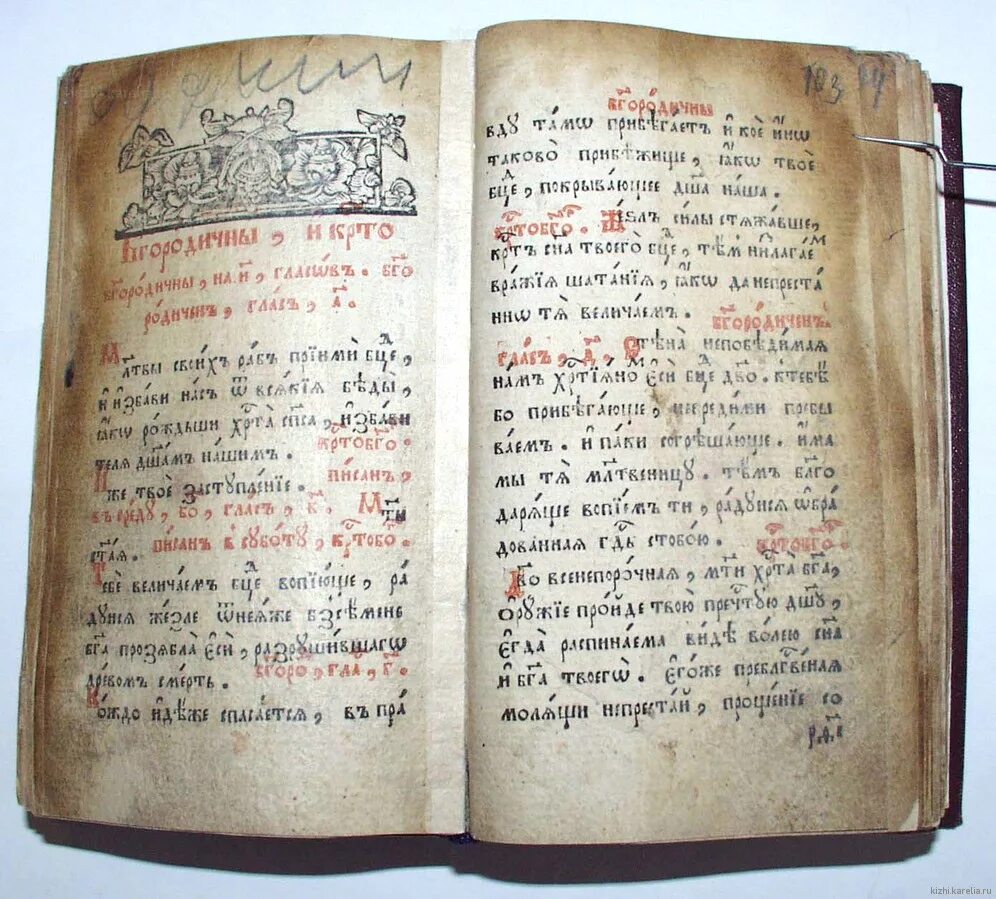 Бг҃оро́дичны, и҆ крⷭ҇то
бг҃оро́дичны, на, и҃, гласѡ́въ. бг҃о
ро́диченъ, гла́съ, а҃.
Мл҃твы свои́хъ ра́бъ прїимѝ бц҃е,
и҆ и҆зба́ви на́съ ѿ всѧ́кїѧ бѣды̀,
ꙗ҆́кѡ ро́ждьши хрⷭ҇та̀ сп҃са, и҆зба́ви
телѧ дш҃а́мъ на́шимъ. крⷭ҇тобг҃о.
И҆́же твоѐ заступле́нїе. пи́санъ,
въ сре́ду, бо, гла́съ, к҃. Мⷭ҇ты
ста́ѧ. пи́санъ в̾ суббо́ту, крⷭ҇тобо.
Тебѐ велича́емъ бц҃е вопїю́ще, ра́
дꙋйсѧ же́зле ѿнеѧ́же без̾сѣ́мене
бг҃а прозѧбла̀ є҆сѝ, разрꙋши́вшагѡ
дре́вомъ сме́рть. бг҃оро, гла, г҃.
Ко́ждо и҆дѣ́же спаса́етсѧ, въ пра́
103
бг҃оро́дичны
вдꙋ та́мѡ прибѣга́етъ и҆ ко́е и҆́нѡ
таково̀ прибѣ́жище, ꙗ҆́кѡ твоѐ
бц҃е, покрыва́ющее дш҃а на́ша.
крⷭ҇тобг҃о. Жє́злъ си́лы стѧжа́вше,
крⷭ҇тъ сн҃а твоегѡ̀ бц҃е, тѣ́мъ низлага́емъ
вра́жїѧ шата́нїѧ, ꙗ҆́кѡ да непреста́
ннѡ тѧ̀ велича́емъ. бг҃оро́диченъ.
гла́съ, д҃, Стѣна̀ непобѣди́маѧ
на́мъ хрⷭ҇тїа́нѡ є҆сѝ бц҃е дв҃о. к̾ тебѣ̀
бо прибѣга́юще, невреди́ми пребы
ва́емъ. и҆ па́ки согрѣша́юще. и҆́ма
мы тѧ̀ мл҃твеницꙋ. тѣ́мъ бл҃го
дарѧ́ще вопїе́мъ ти, ра́дꙋйсѧ ѡ҆бра́
дованнаѧ гд҃ь с̾тобо́ю. крⷭ҇тобг҃о.
Дв҃о всенепоро́чнаѧ, мт҃и хрⷭ҇та̀ бг҃а,
ѻ҆рꙋ́жїе про́йде твою̀ пречⷭ҇тꙋю дш҃ꙋ,
є҆гда̀ распина́ема ви́дѣ во́лею сн҃а
и҆ бг҃а твоегѡ̀. є҆го́же пребл҃гве́наѧ
молѧ́щи непреста́й, проще́нїе со
kizhi.karelia.ru